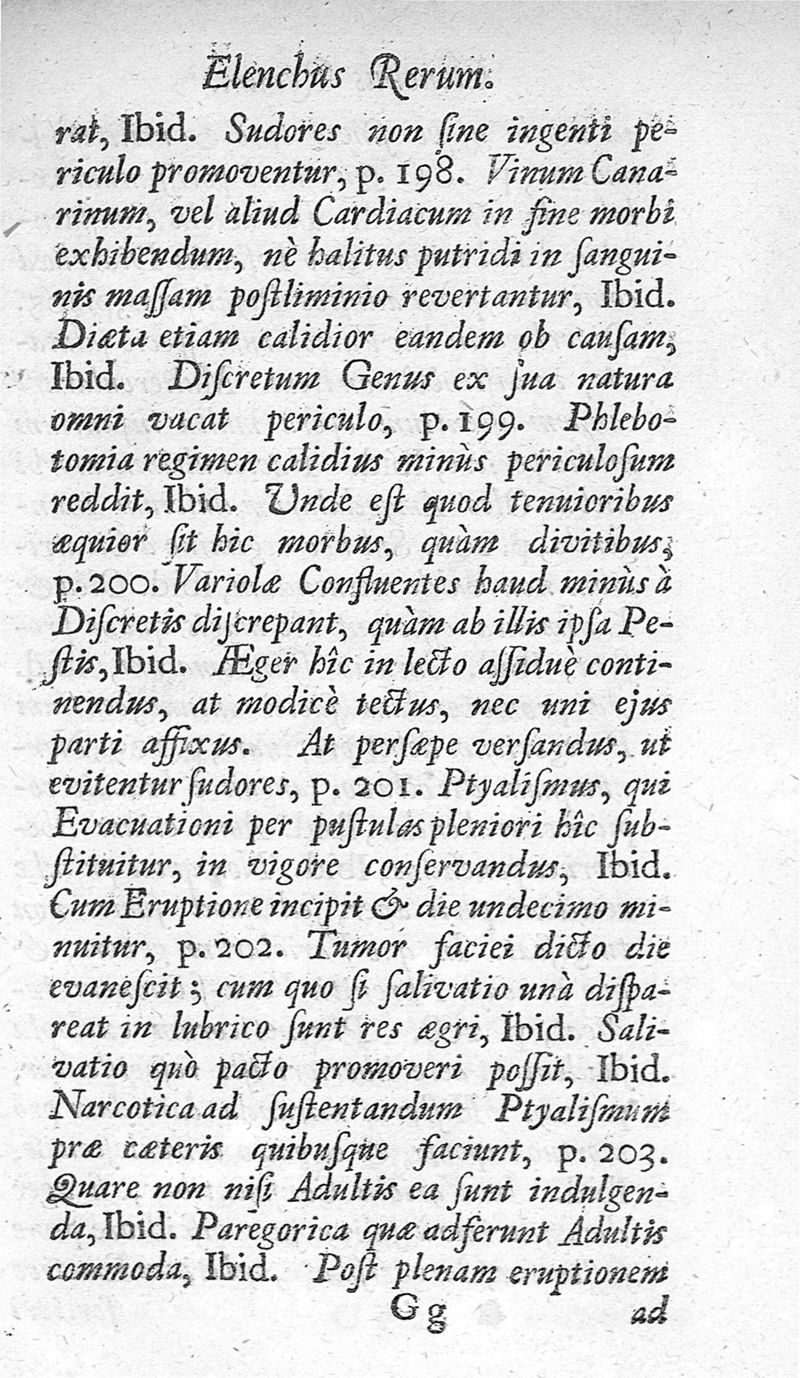 Elenchus Rerum.
rat, Ibid. Sudores non ſine ingenti pe-
riculo promoventur, p. 198. Vinum Cana-
rinum, vel aliud Cardiacum in fine morbi
exhibendum, nè halitus putridi in ſangui-
nis maſſam poſtliminio revertantur, Ibid.
Diæta etiam calidior eandem ob cauſam,
Ibid. Diſcretum Genus ex ſua natura
omni vacat periculo, p. 199. Phlebo-
tomia regimen calidius minùs periculoſum
reddit, Ibid. Unde eſt quod tenuioribus
æquior ſit hic morbus, quàm divitibus,
p. 200. Variolæ Confluentes haud minùs à
Diſcretis diſcrepant, quàm ab illis ipſa Pe-
ſtis, Ibid. Æger hîc in lecto aſſiduè conti-
nendus, at modicè tectus, nec uni ejus
parti affixus. At perſæpe verſandus, ut
evitentur ſudores, p. 201. Ptyaliſmus, qui
Evacuationi per puſtulas pleniori hîc ſub-
ſtituitur, in vigore conſervandus, Ibid.
Cum Eruptione incipit & die undecimo mi-
nuitur, p. 202. Tumor faciei dicto die
evaneſcit; cum quo ſi ſalivatio unà diſpa-
reat in lubrico ſunt res ægri, Ibid. Sali-
vatio quò pacto promoveri poſſit, Ibid.
Narcotica ad ſuſtentandum Ptyaliſmum
præ cæteris quibuſque faciunt, p. 203.
Quare non niſi Adultis ea ſunt indulgen-
da, Ibid. Paregorica quæ adferunt Adultis
commoda, Ibid. Poſt plenam eruptionem
Gg ad